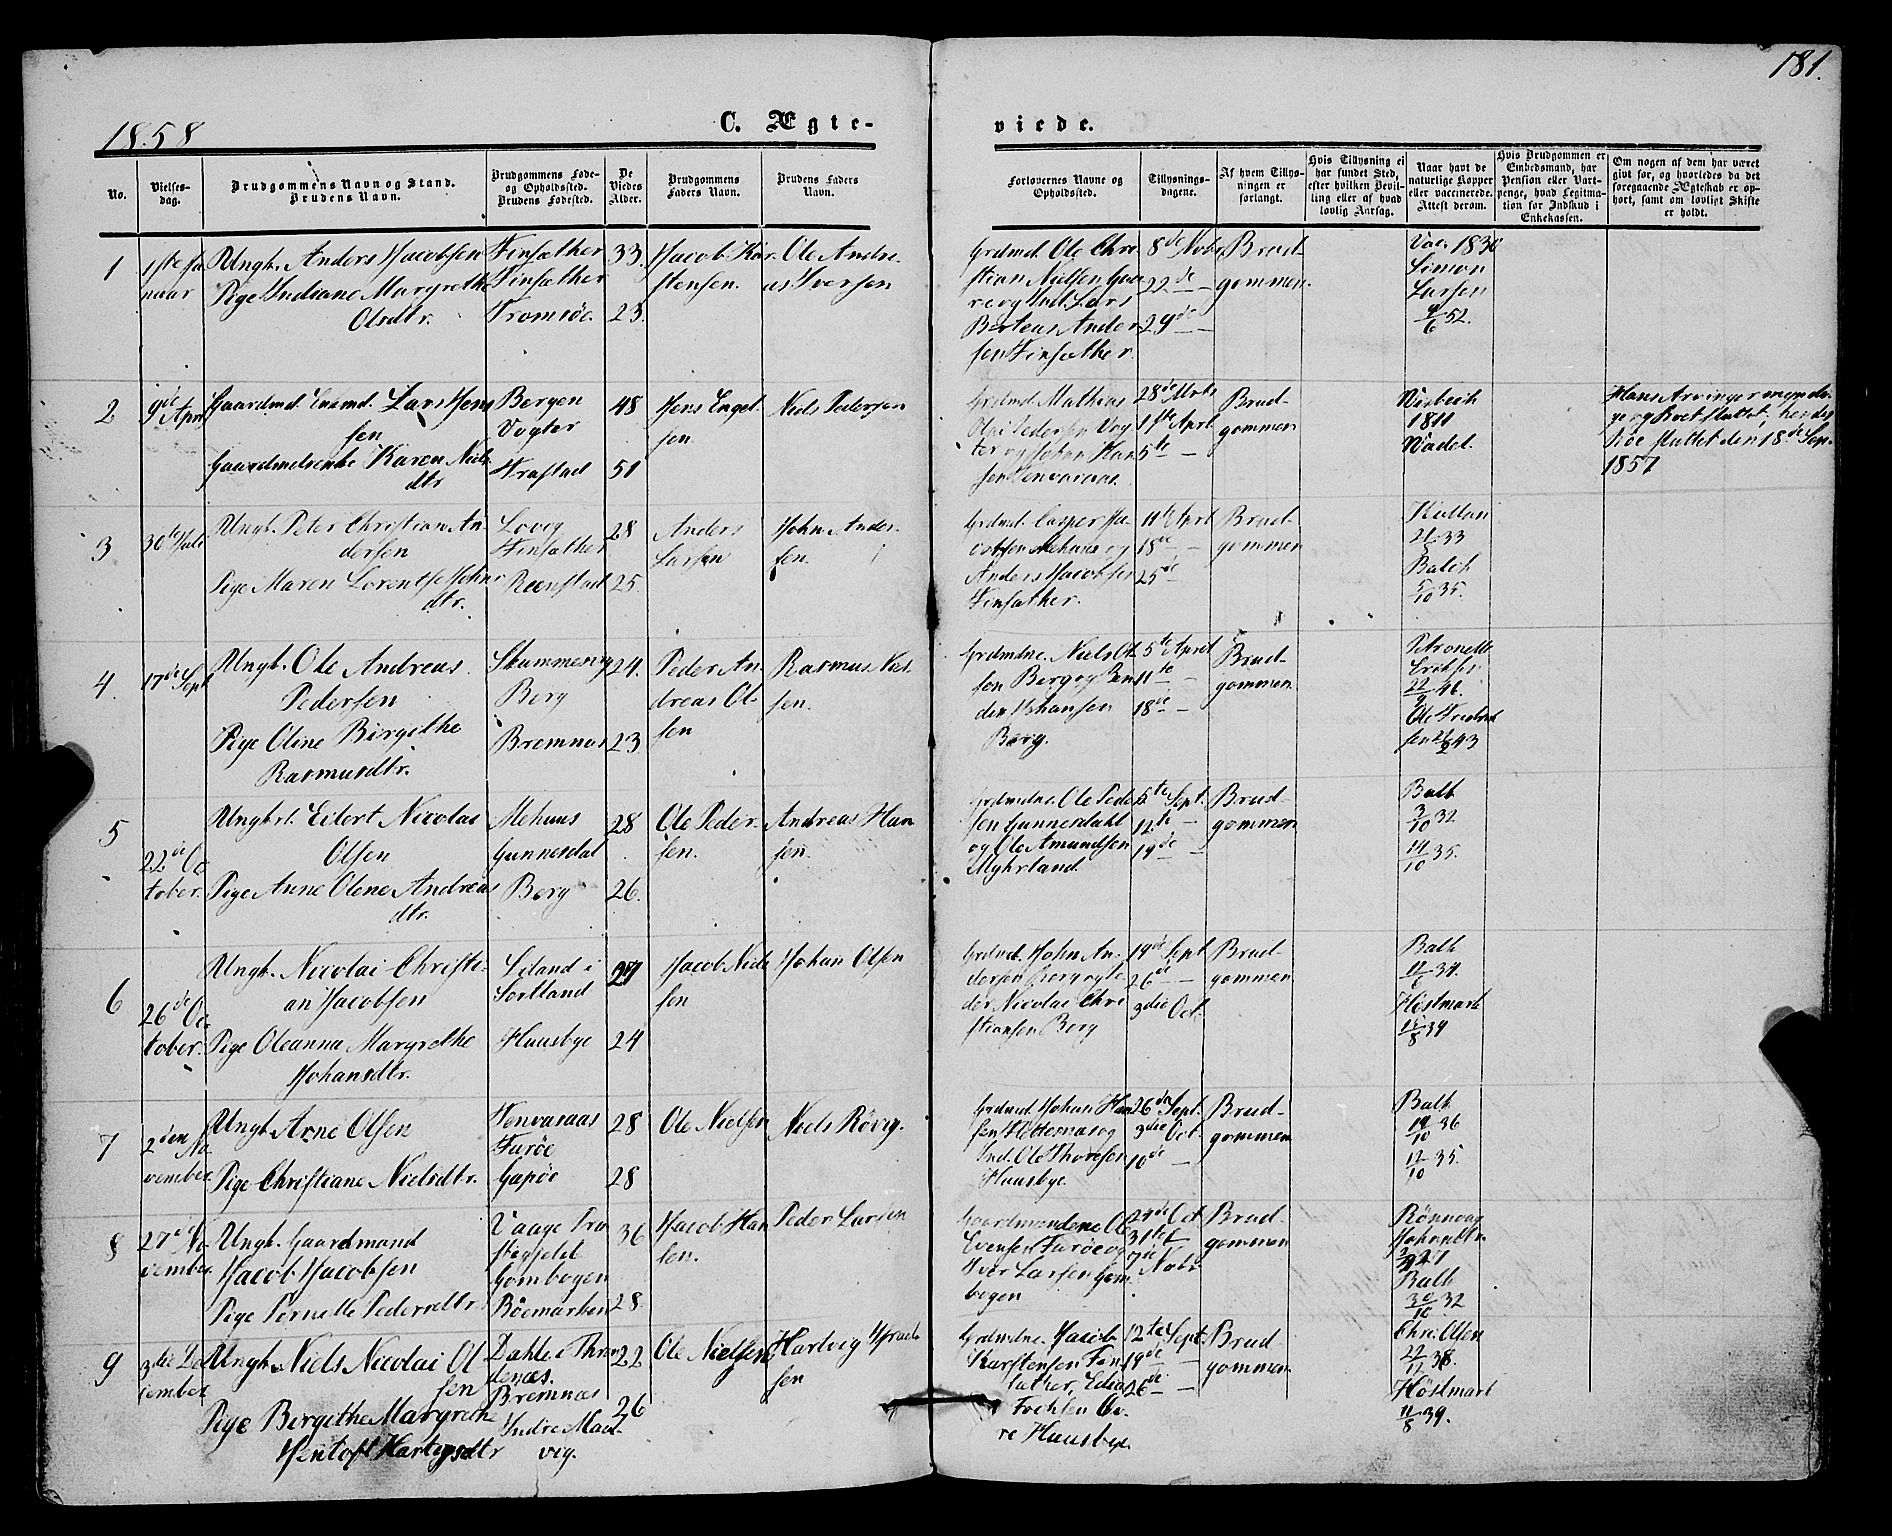 181.
1858
C. Ægte-
viede.
No.
Vielses-
dag.
Brudgommens Navn og Stand.
Brudens Navn.
Brudgommens Føde-
og Opholdssted.
Brudens Fødested.
De
Viedes
Alder.
Brudgommens
Faders Navn.
Brudens Faders
Navn.
Forlovernes Navne og
Opholdssted.
Tillysnings-
dagene.
Af hvem Tillys-
ningen er
forlangt.
Hvis Tillysning ei
har fundet Sted,
efter hvilken Bevil-
ling eller af hvad
lovlig Aarsag.
Naar havt de
naturlige Kopper
eller vaccinerede.
Attest derom.
Hvis Brudgommen er
Embedsmand, har
Pension eller Vart-
penge, hvad Legitima-
tion for Indskud i
Enkekassen.
Om nogen af dem har været
givt før, og hvorledes da det
foregaaende Ægteskab er op-
hørt, samt om lovligt Skifte
er holdt.
1
1ste Ja
nuar
Ungk. Anders Jacobsen
Pige Indiane Margrethe
Olsdtr.
Finsæther
Finsæther
Tromsöe.
33.
23.
Jacob Kar
stensen.
Ole Andre
as Iversen
Grdmd. Ole Chri
stian Nielsen
Lars
Berteus Ander
sen Finsæther.
8de Novbr
22de —
29de —
Brud-
gommen.
Vac. 1836
Simon
Larsen
9/6 52.
2
9de April
Gaardmd. Enkmd. Lars Jens
sen
Gaardmdsenke Karen Niels
dtr
Bergen
Vogter
Krastad
48
51
Jens Engel
sen
Niels Pedersen
Grdmd. Mathias
Pedersen Vog
ter og Johan Han
sen
28de Mrts
1ste April
5te —
Brud-
gommen
1811
Wadel.
Hans
den 18de Sep
1857
3
30te Juli
Ungk. Peter Christian An
dersen
Pige Maren Lorentse Johns
dtr.
Lovig
Finsæther
Reenstad
28
25.
Anders
Larsen
John Ander
sen.
Grdmd. Casper Ja
cobsen Mehuus og
Anders Jacobsen
Finsæther.
11te April
18de —
25de
Brud-
gommen
33
Balch
5/10 35.
4.
17de Sept
Ungk. Ole Andreas
Pedersen
Pige Oline Birgithe
Rasmusdtr.
Skrammenvig
Berg
Bremnes
24.
23.
Peder An
dreas Ol-
sen
Rasmus Niel
sen.
Grdmdne. Niels Ol
sen Berg og Ben
Johansen
Berg.
5te April
11te —
18de —
Brud-
gommen
Petronelle
Eriksen
22/9 46.
Ole Fredrik
sen 43
5
22de Oc
tober.
Ungkrl. Edert Nicolai
Olsen
Pige Anne Olene Andreas
dtr.
Mehuus
Gunnesdal
Berg
28
26.
Ole Peder
sen.
Andreas Han
sen.
Grdmdne. Ole Peder
sen Gunnesdahl
og Ole Amundsen
Myhrland.
5te Sept.
12te —
19de —
Brud-
gommen
Balk
3/10 32
14/10 35.
6
26de Oc
tober.
Ungk. Nicolai Christi-
an Jacobsen
Pige Oleanna Margrethe
Johansdtr.
Leland i
Sortland
Huusbye
27
24
Jacob Niel
sen
Johan Olsen
Grdmd. John An
dersen Berg og
Nicolai Chri
stiansen Berg
19de Sept
26de —
3die Oct.
Brud-
gommen
Balk
34.
Höstmark
39
7
2den No
vember
Ungk. Arne Olsen
Pige Christiane Nielsdtr.
Stenvaraas
Faröe
Gapöe
28
28
Ole Nielsen
Niels Rövig.
Grdmd. Johan Han
sen og
Ind. Ole Thoresen
Huusbye
26de Sept.
3die Oct.
10de —
Brud-
gommen
Balk
19/10 36
12/10 35.
8
27de No
vember
Ungk. Gaardmand
Jacob Jacobsen
Pige Pernille Pedersdtr.
Vaage Præ
stegjeld
Gombogen
Röemarken
36
28.
Jacob Han
sen.
Peder Larsen
Gaardmændene Ole
Evensen Faröe og
Iver Larsen Gom
bogen
24de Oct
31te
7de Novbr
Brud-
gommen
Rönnaug
Johnsdtr.
27
Balk
30/10 32
9
3die De
cember
Ungk. Niels Nicolai Ol
sen
Pige Bergithe Margrethe
Jentoft Hartvigsdtr
Dahle i Thron
denæs.
Bremnæs
Indre Mad
vig.
22
26
Ole Nielsen
Hartvig Israel
sen
Grdmdne. Jacob
Karstensen Fin
sæther,
re Huusbye.
12te Sept.
19de —
26de —
Brud
gommen
Chri. Olsen
22/12 38.
Höstmark
11/8 39.